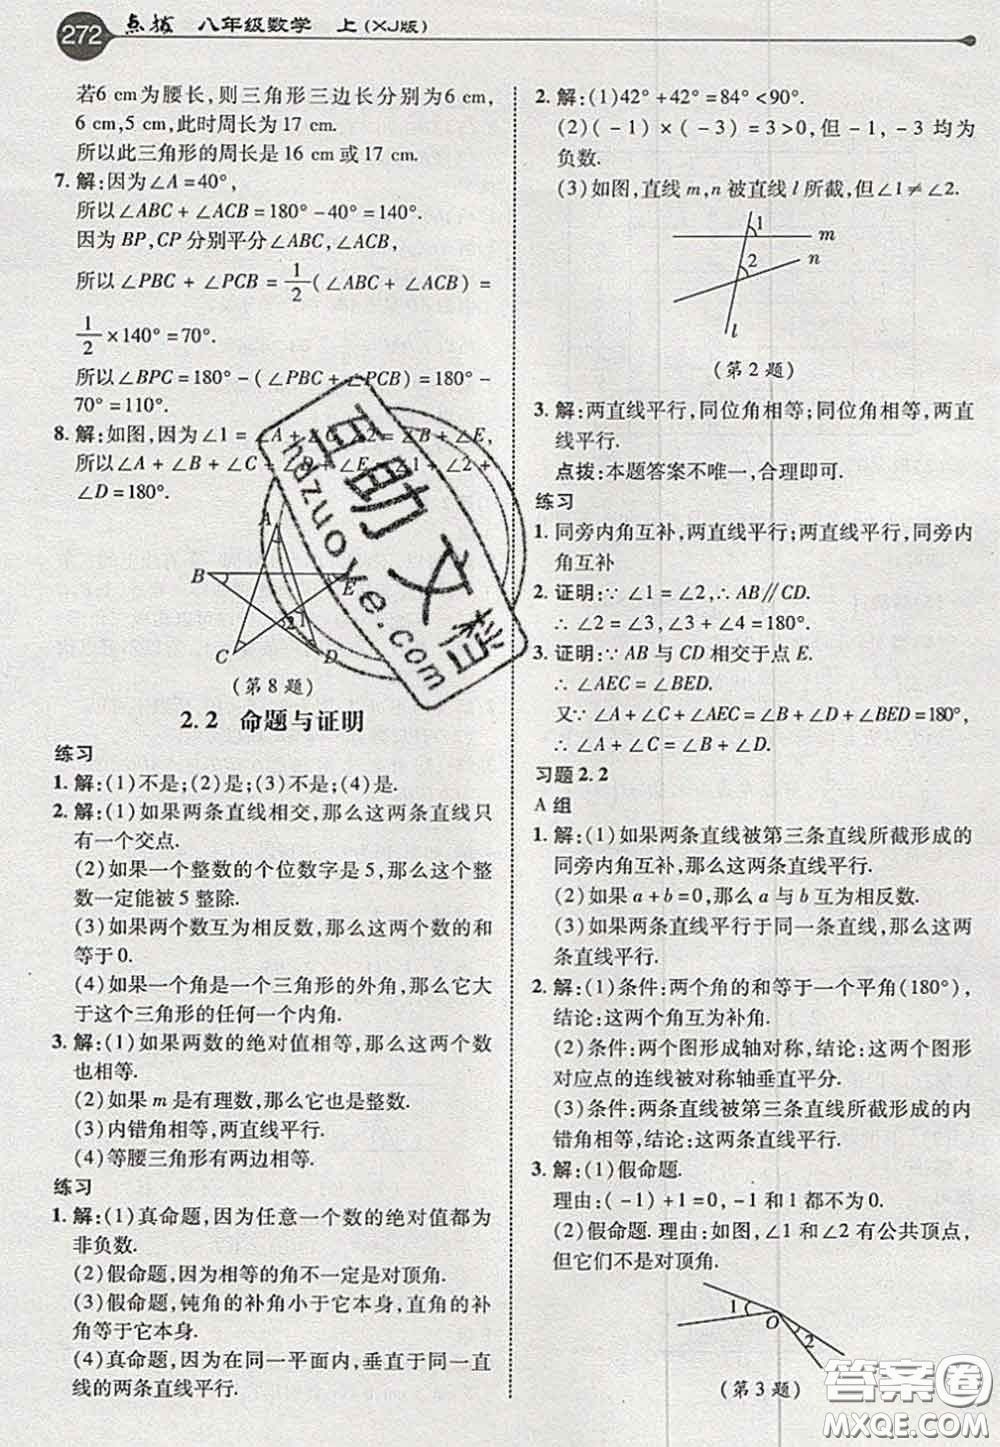 272 点拨 八年级数学 上(XJ版)
若6 cm为腰长,则三角形三边长分别为6 cm,
6 cm,5 cm,此时周长为17 cm.
所以此三角形的周长是16 cm或17 cm.
7. 解:因为∠A=40°,
所以∠ABC+∠ACB=180°-40°=140°.
因为BP,CP分别平分∠ABC,∠ACB,
所以∠PBC+∠PCB=1/2(∠ABC+∠ACB)=
1/2×140°=70°.
所以∠BPC=180°-(∠PBC+∠PCB)=180°-
70°=110°.
8. 解:如图,因为∠1=∠A+ ∠2=∠B+∠E,
所以∠A+∠B+∠C+
+∠D=180°.
A
B
E
2
1
C
D
(第8题)
2.2 命题与证明
练习
1. 解:(1)不是;(2)是;(3)不是;(4)是.
2. 解:(1)如果两条直线相交,那么这两条直线只
有一个交点.
(2)如果一个整数的个位数字是5,那么这个整
数一定能被5整除.
(3)如果两个数互为相反数,那么这两个数的和
等于0.
(4)如果一个角是一个三角形的外角,那么它大
于这个三角形的任何一个内角.
3. 解:(1)如果两数的绝对值相等,那么这两个数
也相等.
(2)如果m是有理数,那么它也是整数.
(3)内错角相等,两直线平行.
(4)等腰三角形有两边相等.
练习
1. 解:(1)真命题,因为任意一个数的绝对值都为
非负数.
(2)假命题,因为相等的角不一定是对顶角.
(3)假命题,钝角的补角小于它本身,直角的补
角等于它本身.
(4)真命题,在同一平面内,垂直于同一直
线的两条直线平行.
2. 解:(1)42°+42°=84°<90°.
(2)(-1)×(-3)=3>0,但-1,-3均为
负数.
(3)如图,直线m,n被直线l所截,但∠1≠∠2.
1
m
2
n
l
(第2题)
3. 解:两直线平行,同位角相等;同位角相等,两直
线平行.
点拨:本题答案不唯一,合理即可.
练习
1. 同旁内角互补,两直线平行;两直线平行,同旁内
角互补
2. 证明:∵∠1=∠2,∴AB∥CD.
∴∠2=∠3,∠3+∠4=180°.
3. 证明:∵AB与CD相交于点E.
∴∠AEC=∠BED.
又∵∠A+∠C+∠AEC=∠B+∠D+∠BED=180°,
∴∠A+∠C=∠B+∠D.
习题2.2
A组
1. 解:(1)如果两条直线被第三条直线所截形成的
同旁内角互补,那么这两条直线平行.
(2)如果a+b=0,那么a与b互为相反数.
(3)如果两条直线平行于同一条直线,那么这两
条直线平行.
2. 解:(1)条件:两个角的和等于一个平角(180°),
结论:这两个角互为补角.
(2)条件:两个图形成轴对称,结论:这两个图形
对应点的连线被对称轴垂直平分.
(3)条件:两条直线被第三条直线所截形成的内
错角相等,结论:这两条直线平行.
3. 解:(1)假命题.
理由:(-1)+1=0,-1和1都不为0.
(2)假命题.理由:如图,∠1和∠2有公共顶点,
但它们不是对顶角.
1
O
2
(第3题)
互助文档
hdzuoye.com
答案圈
MXQE.COM